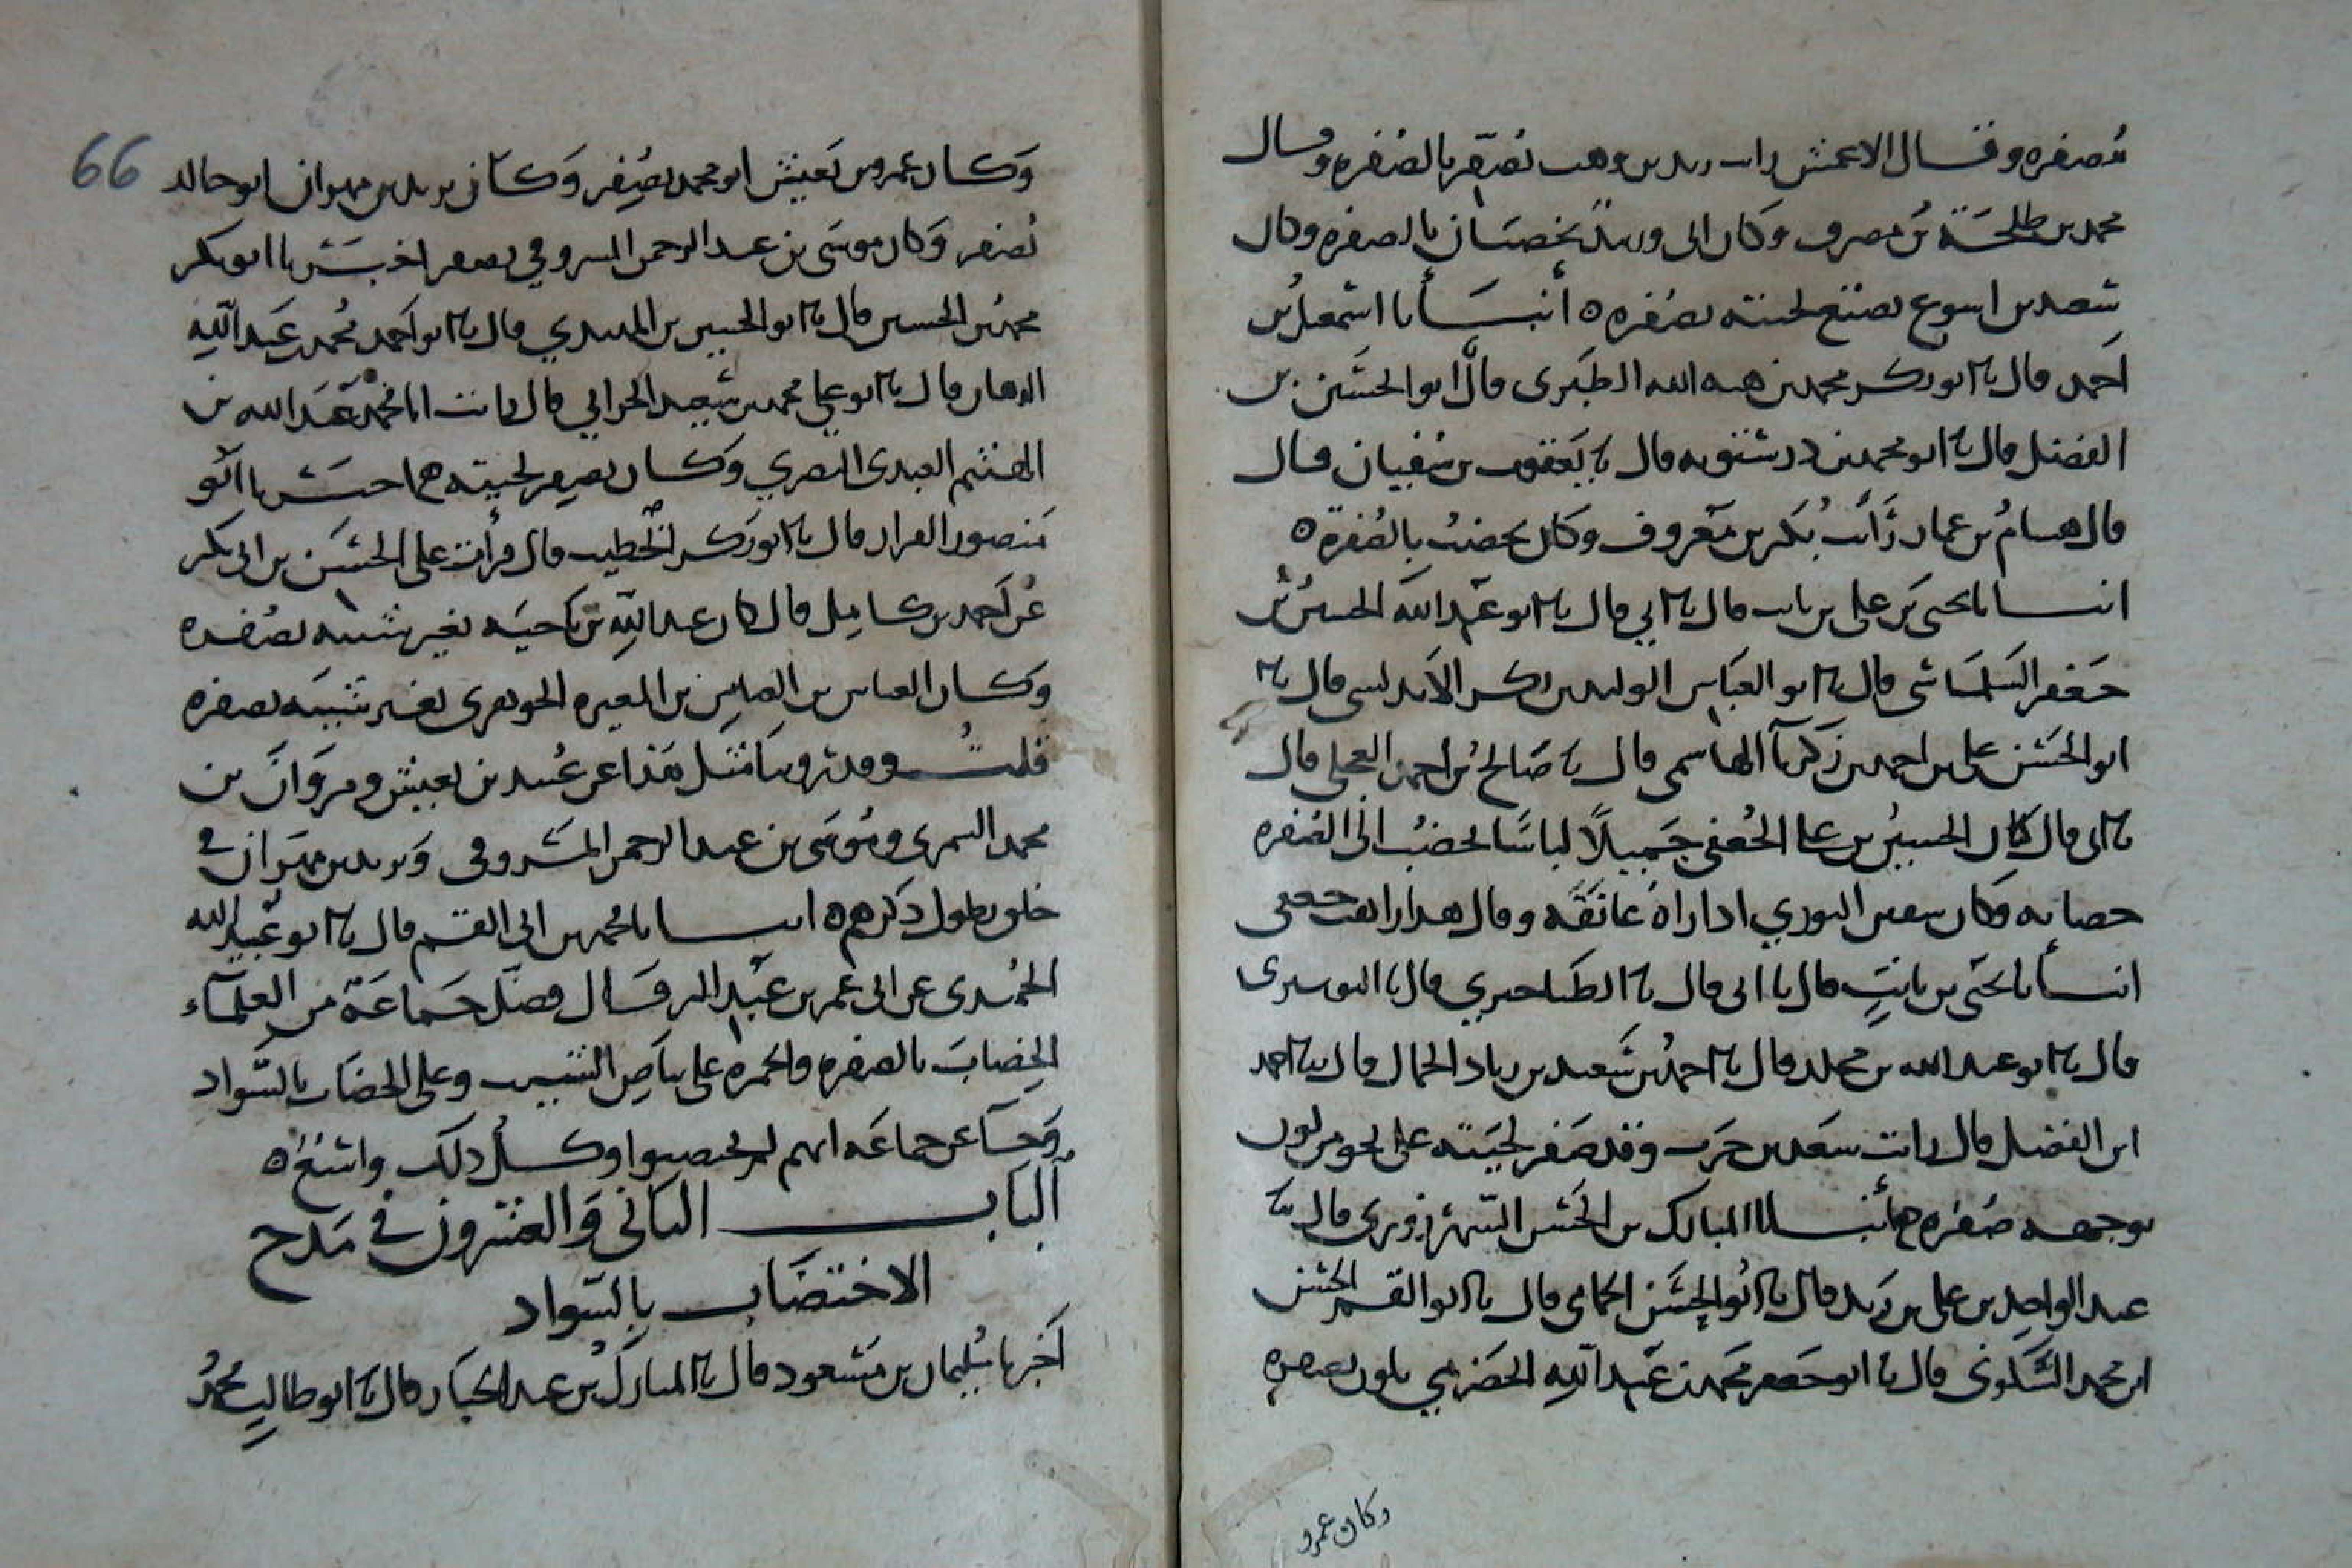 بصفره وقال الاعمش رات زيد بن وهب يصفر بالصفره وقال
محمد بن طلحة بن مصرف وكان ابى وزبيد يخضبان بالصفره وكان
سعيد بن اسوع يصبغ لحيته بصفره ٥ أنبسأنا اسمعيل بن
احمد قال نا ابو بكر محمد بن هبه الله الطبرى قال انا ابو الحسين بن
الفضل قال نا ابو محمد بن درستويه قال نا يعقوب بن سفيان قال
قال هسام بن عمار رأيت بكر بن معروف وكان يخضب بالصفرة ٥
انبسانا يحيى بن على بن ثابت قال نا ابي قال نا ابو عبد الله الحسين بن
جعفر السلماسى قال نا ابو العباس الوليد بن بكر الاندلسى قال نا
ابو الحسن على بن احمد بن زكريا الهاسمى قال نا صالح بن احمد العجلى قال
نا ابى قال كان الحسين بن على الجعفى جميلا لباسا يخضب الى الصفره
خضابه وكان سفين الثوري اذا راه عانقه وقال هذا راهب جعفى
انبسأنا يحيى بن ثابت قال نا ابى قال نا الطناجيري قال نا
قال نا ابو عبد الله بن مخلد قال نا احمد بن سعيد بن زياد الجمال قال نا احمد
ابن الفضل قال رايت سعيد بن حرب وقد صفر لحيته على نحو من لون
بوجهه صفره أنبسانا المبارك بن الحسن الشهرزورى قال نا
عبد الواحد بن على بن قال نا ابو الحسن الحمامى قال نا ابو القسم الحسن
ابن محمد السكونى قال نا ابو جعفر محمد بن عبد الله الحضرمي يلون بصفره
وكان عمرو
66
وكان عمرو بن يعيش ابو محمد يصفر وكان يزيد بن مهران ابو خالد
يصفر وكان موسى بن عبد الرحمن المسروقي يصفر اخبسرنا ابو بكر
محمد بن الحسين قال نا ابو الحسين بن المهتدي قال نا ابو احمد محمد بن عبد الله
الدهان قال نا ابو علي محمد بن سعيد الحراني قال رايت ابا محمد عبد الله بن
الهيثم العبدى البصري وكان يصفر لحيته اخبسرنا ابو
منصور القزاز قال نا ابو بكر الخطيب قال قرأت على الحسن بن ابى بكر
عن احمد بن كامل قال كان عبد الله بن ناجيه يغير شيبه بصفره
وكان العباس بن العباس بن المغيره الجوهرى يغير شيبته بصفره
قلت وقد روينا مثل هذا عن عبيد بن يعيش ومروان بن
محمد السمرى وموسى بن عبد الرحمن المسروقى ويزيد بن مهران في
خلق يطول ذكرهم ٥ انبسانا محمد بن ابى القسم قال نا ابو عبد الله
الحميدى عن ابى عمر بن عبد البر قال فضل جماعة من العلماء
الخضاب بالصفره والحمره على بياض الشيب وعلى الخضاب بالسواد
وجا عن جماعه انهم لم يخضبوا وكل ذلك واسع ٥
الباب الثانى والعشرون في مدح
الاختضاب بالسواد
اخبرنا سليمان بن مسعود قال نا المبارك بن عبد الجبار قال نا ابو طالب محمد